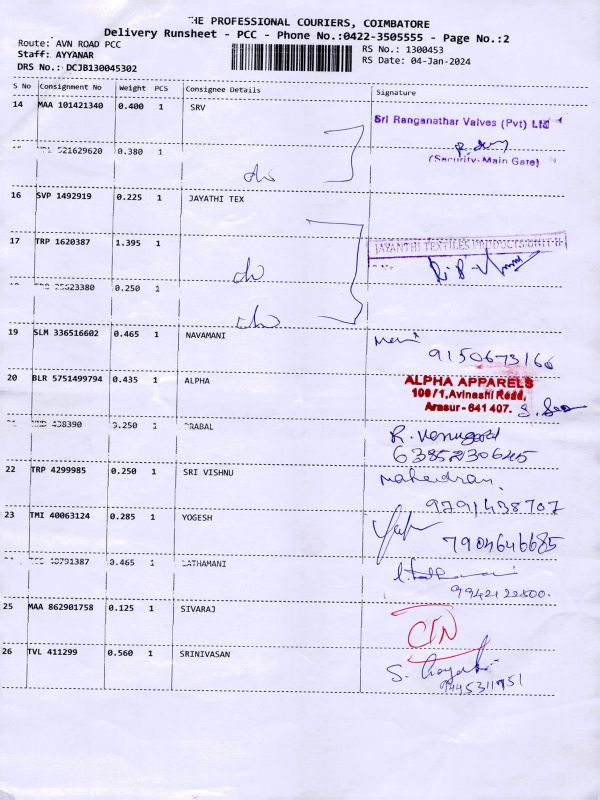 THE PROFESSIONAL COURIERS, COIMBATORE
Delivery Runsheet - PCC - Phone No.:0422-3505555 - Page No.:2
Route: AVN ROAD PCC
RS No.: 1300453
Staff: AYYANAR
RS Date: 04-Jan-2024
DRS No.: DCJB130045302
S No Consignment No Weight PCS Consignee Details Signature
14 MAA 101421340 0.400 1 SRV
Sri Ranganathar Valves (Pvt) Ltd
(Security-Main Gate)
521629620 0.380 1
do
16 SVP 1492919 0.225 1 JAYATHI TEX
17 TRP 1620387 1.395 1
JAYANTHI TEXTILES PRODUCTS UNIT-II
do
0.250 1
do
19 SLM 336516602 0.465 1 NAVAMANI
9150673166
20 BLR 5751499794 0.435 1 ALPHA
ALPHA APPARELS
100/1, Avinashi Road,
Arasur - 641 407.
438390 0.250 1 PRABAL
R. Venugopal
22 TRP 4299985 0.250 1 SRI VISHNU
Mahendran
9791438707
23 TMI 40063124 0.285 1 YOGESH
7904646685
0.465 1 LATHAMANI
9942122800.
25 MAA 862901758 0.125 1 SIVARAJ
26 TVL 411299 0.560 1 SRINIVASAN
S.